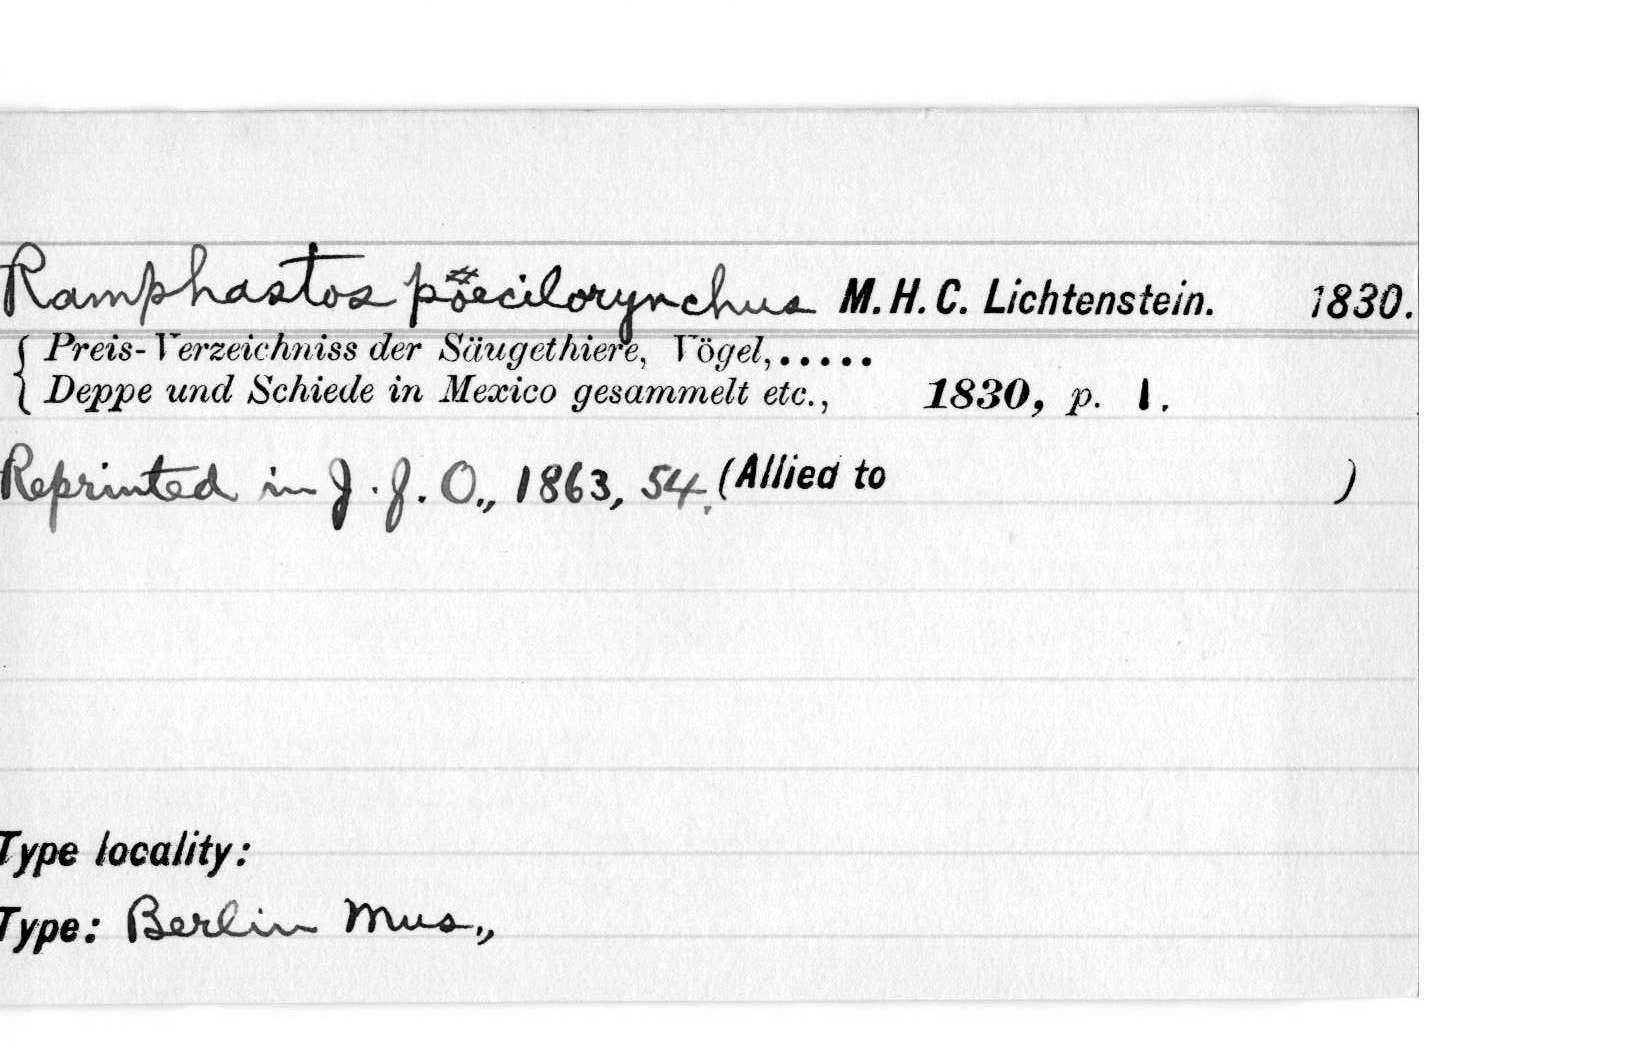 Ramphastos poecilorynchus M. H. C. Lichtenstein. 1830.
Preis-Verzeichniss der Säugethiere, Vögel,.....
Deppe und Schiede in Mexico gesammelt etc., 1830, p. 1.
Reprinted in J. f. O., 1863, 54. (Allied to )
Type locality:
Type: Berlin Mus.,